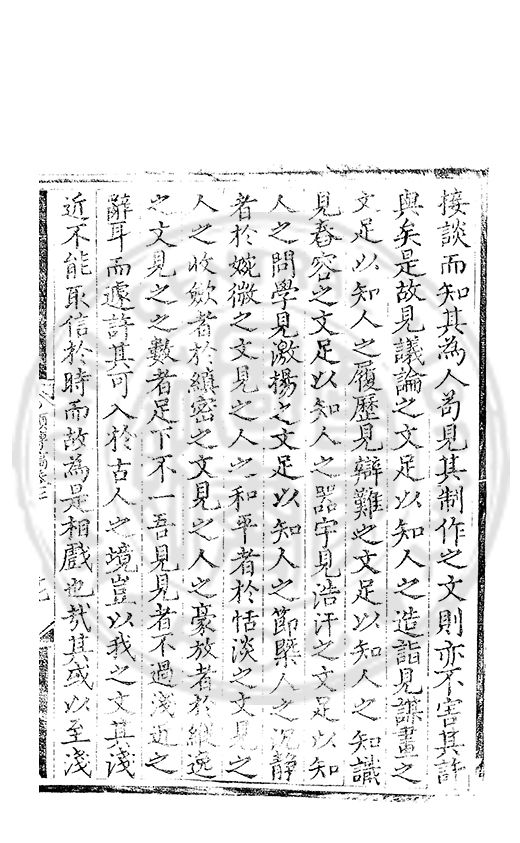 接談而知其為人苟見其制作之文則亦不害其許
與矣是故見議論之文足以知人之造詣見謀畫之
文足以知人之履歷見辯難之文足以知人之知識
見舂容之文足以知人之器宇見浩汗之文足以知
人之問學見激揚之文足以知人之節槩人之沉靜
者於婉微之文見之人之和平者於恬淡之文見之
人之收斂者於縝密之文見之人之豪放者於縱逸
之文見之之數者足下不一吾見見者不過淺近之
辭耳而遽許其可入於古人之境豈以我之文其淺
近不能取信於時而故為是相戲也哉其或以至淺